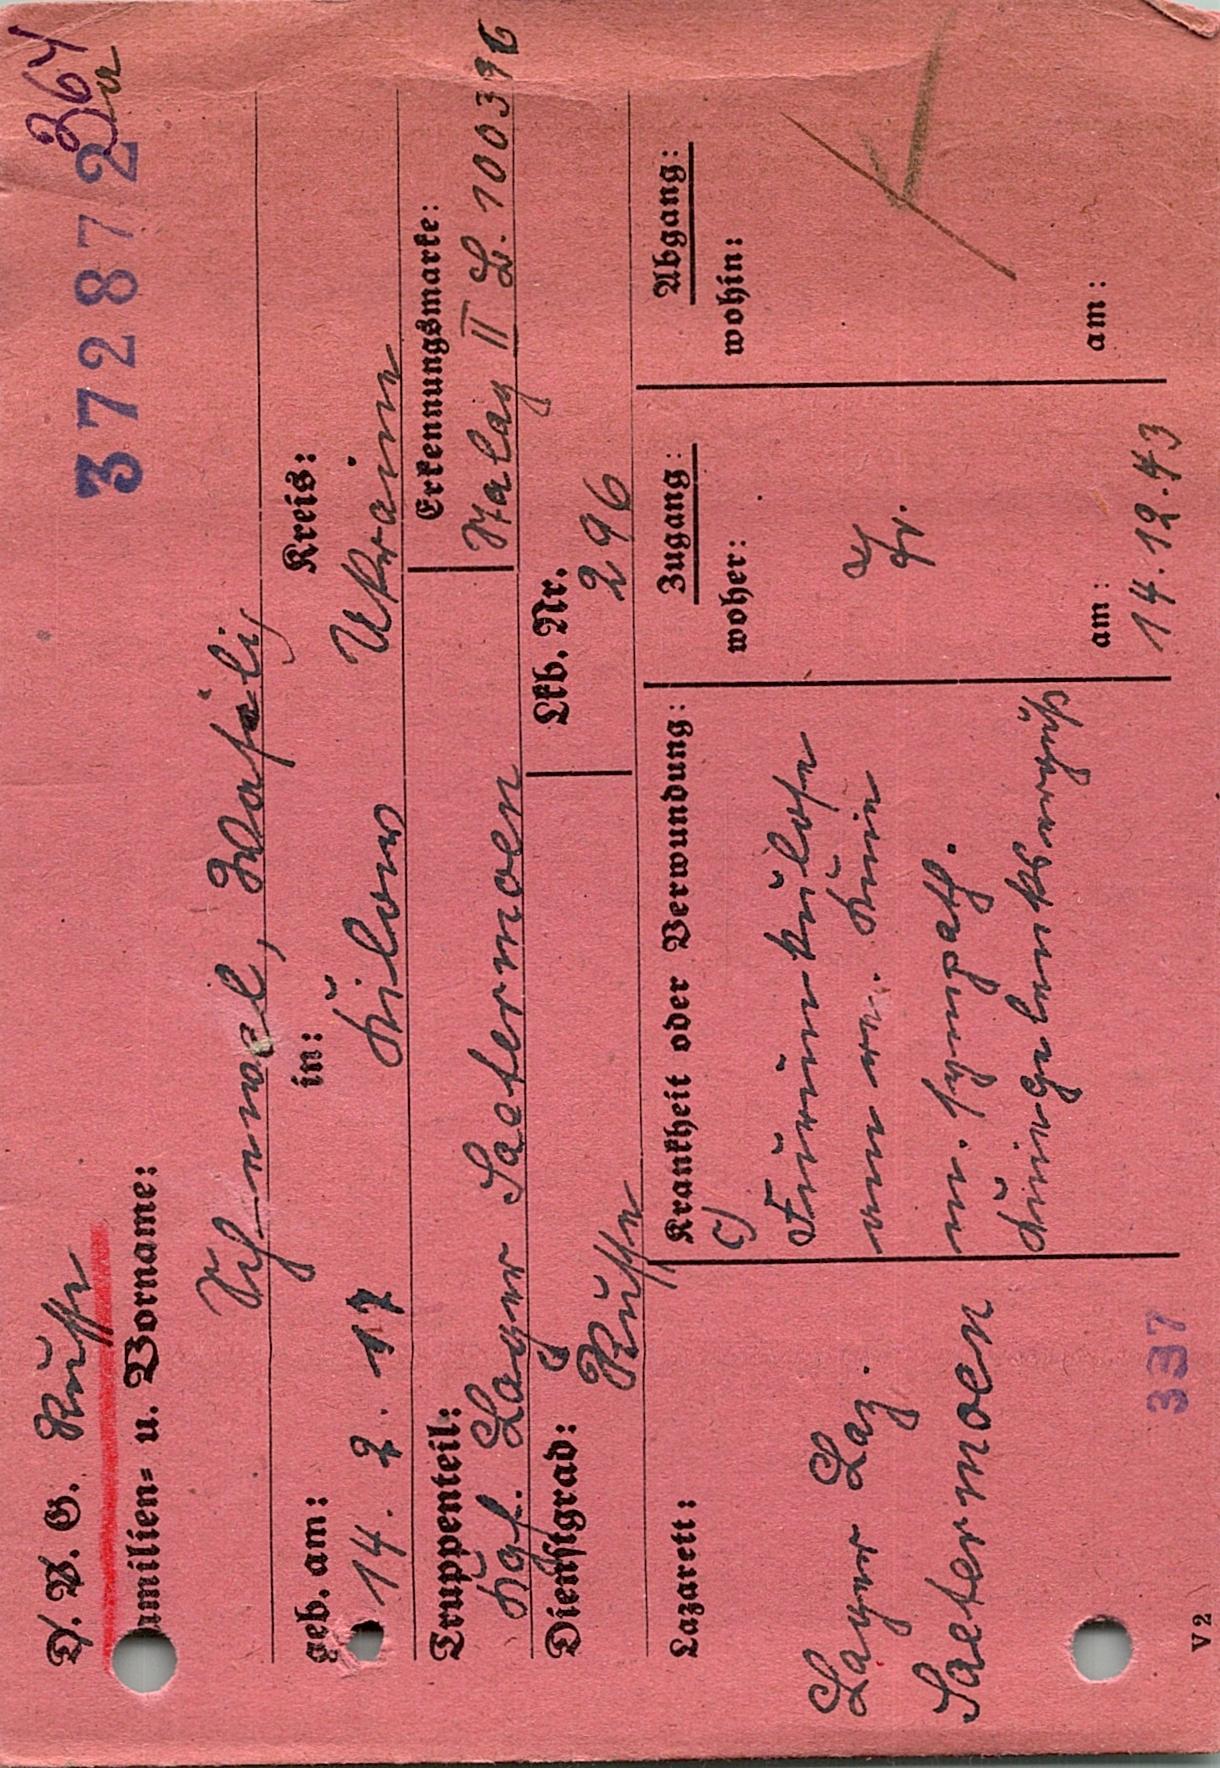 364
a
D. V. G. Russe
372872
Familien- u. Vorname:
Schmael, Wasilij
geb. am: in: Kreis:
14. 2. 17 Kilow Ukraine
Truppenteil: Erkennungsmarke:
Kgf. Lager Saetermoen Stalag II B. 100396
Dienstgrad: Lkb. Nr.
Russe 296
Lazarett: Krankheit oder Verwundung: Zugang: Abgang:
woher: wohin:
Furunkulose
Lager Laz.
Tr.
Saetermoen
u. sympath.
am: am:
14.12.43
337
V 2